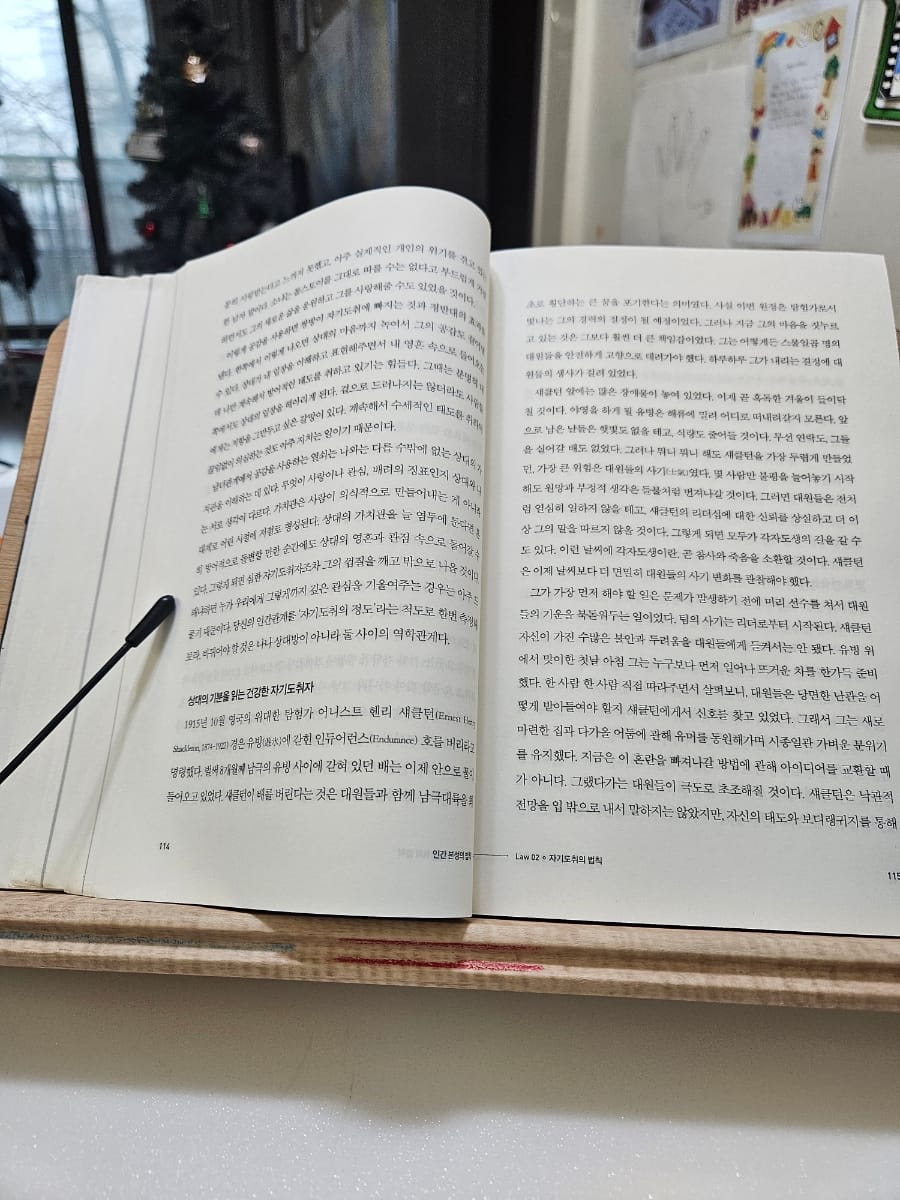 못 사랑받는다고 느끼지 못했고, 아주 실제적인 개인의 위기를 겪고 있는
한 남자 말이다. 소냐는 톨스토이를 그대로 따를 수는 없다고 부드럽게 거절
하면서도 그의 새로운 삶을 응원하고 그를 사랑해줄 수도 있었을 것이다.
이렇게 공감을 사용하면 쌍방이 자기도취에 빠지는 것과 정반대의 효과를
낸다. 한쪽에서 이렇게 나오면 상대의 마음까지 녹아서 그의 공감도
수 있다. 상대가 내 입장을 이해하고 표현해주면서 내 영혼 속으로 들어오는
데 나만 계속해서 방어적인 태도를 취하고 있기는 힘들다. 그때는 분명히 내
쪽에서도 상대의 입장을 헤아리게 된다. 겉으로 드러나지는 않더라도 사람들
에게는 저항을 그만두고 싶은 갈망이 있다. 계속해서 수세적인 태도를 취하며
끊임없이 의심하는 것도 아주 지치는 일이기 때문이다.
남녀관계에서 공감을 사용하는 열쇠는 나와는 다를 수밖에 없는 상대의 가
치관을 이해하는 데 있다. 무엇이 사랑이나 관심, 배려의 징표인지 상대와 나
는 서로 생각이 다르다. 가치관은 사람이 의식적으로 만들어내는 게 아니라
대체로 어린 시절에 저절로 형성된다. 상대의 가치관을 늘 염두에 둔다면 흔
히 방어적으로 돌변할 만한 순간에도 상대의 영혼과 관점 속으로 들어갈 수
있다. 그렇게 되면 심한 자기도취자조차 그의 껍질을 깨고 밖으로 나올 것이다.
왜냐하면 누가 우리에게 그렇게까지 깊은 관심을 기울여주는 경우는 아주 드
물기 때문이다. 당신의 인간관계를 '자기도취의 정도'라는 척도로 한번 측정해
보라. 바뀌어야 할 것은 나나 상대방이 아니라 둘 사이의 역학관계다.
상대의 기분을 읽는 건강한 자기도취자
1915년 10월 영국의 위대한 탐험가 어니스트 헨리 섀클턴(Ernest Henry
Shackleton, 1874-1922) 경은 유빙(流氷)에 갇힌 인듀어런스(Endurance) 호를 버리라고
명령했다. 벌써 8개월째 남극의 유빙 사이에 갇혀 있던 배는 이제 안으로 물이
들어오고 있었다. 섀클턴이 배를 버린다는 것은 대원들과 함께 남극대륙을 최
114
인간 본성의 법칙
초로 횡단하는 큰 꿈을 포기한다는 의미였다. 사실 이번 원정은 탐험가로서
빛나는 그의 경력의 절정이 될 예정이었다. 그러나 지금 그의 마음을 짓누르
고 있는 것은 그보다 훨씬 더 큰 책임감이었다. 그는 어떻게든 스물일곱 명의
대원들을 안전하게 고향으로 데려가야 했다. 하루하루 그가 내리는 결정에 대
원들의 생사가 걸려 있었다.
섀클턴 앞에는 많은 장애물이 놓여 있었다. 이제 곧 혹독한 겨울이 들이닥
칠 것이다. 야영을 하게 될 유빙은 해류에 밀려 어디로 떠내려갈지 모른다. 앞
으로 남은 날들은 햇빛도 없을 테고, 식량도 줄어들 것이다. 무선 연락도, 그들
을 실어갈 배도 없었다. 그러나 뭐니 뭐니 해도 섀클턴을 가장 두렵게 만들었
던, 가장 큰 위험은 대원들의 사기(士氣)였다. 몇 사람만 불평을 늘어놓기 시작
해도 원망과 부정적 생각은 들불처럼 번져나갈 것이다. 그러면 대원들은 전처
럼 열심히 일하지 않을 테고, 섀클턴의 리더십에 대한 신뢰를 상실하고 더 이
상 그의 말을 따르지 않을 것이다. 그렇게 되면 모두가 각자도생의 길을 갈 수
도 있다. 이런 날씨에 각자도생이란, 곧 참사와 죽음을 소환할 것이다. 섀클턴
은 이제 날씨보다 더 면밀히 대원들의 사기 변화를 관찰해야 했다.
그가 가장 먼저 해야 할 일은 문제가 발생하기 전에 미리 선수를 쳐서 대원
들의 기운을 북돋워두는 일이었다. 팀의 사기는 리더로부터 시작된다. 섀클턴
자신이 가진 수많은 불안과 두려움을 대원들에게 들켜서는 안 됐다. 유빙 위
에서 맞이한 첫날 아침 그는 누구보다 먼저 일어나 뜨거운 차를 한가득 준비
했다. 한 사람 한 사람 직접 따라주면서 살펴보니, 대원들은 당면한 난관을 어
떻게 받아들여야 할지 섀클턴에게서 신호를 찾고 있었다. 그래서 그는 새로
마련한 집과 다가온 어둠에 관해 유머를 동원해가며 시종일관 가벼운 분위기
를 유지했다. 지금은 이 혼란을 빠져나갈 방법에 관해 아이디어를 교환할 때
가 아니다. 그랬다가는 대원들이 극도로 초조해질 것이다. 섀클턴은 낙관적
전망을 입 밖으로 내서 말하지는 않았지만, 자신의 태도와 보디랭귀지를 통해
Law 02 자기도취의 법칙
115